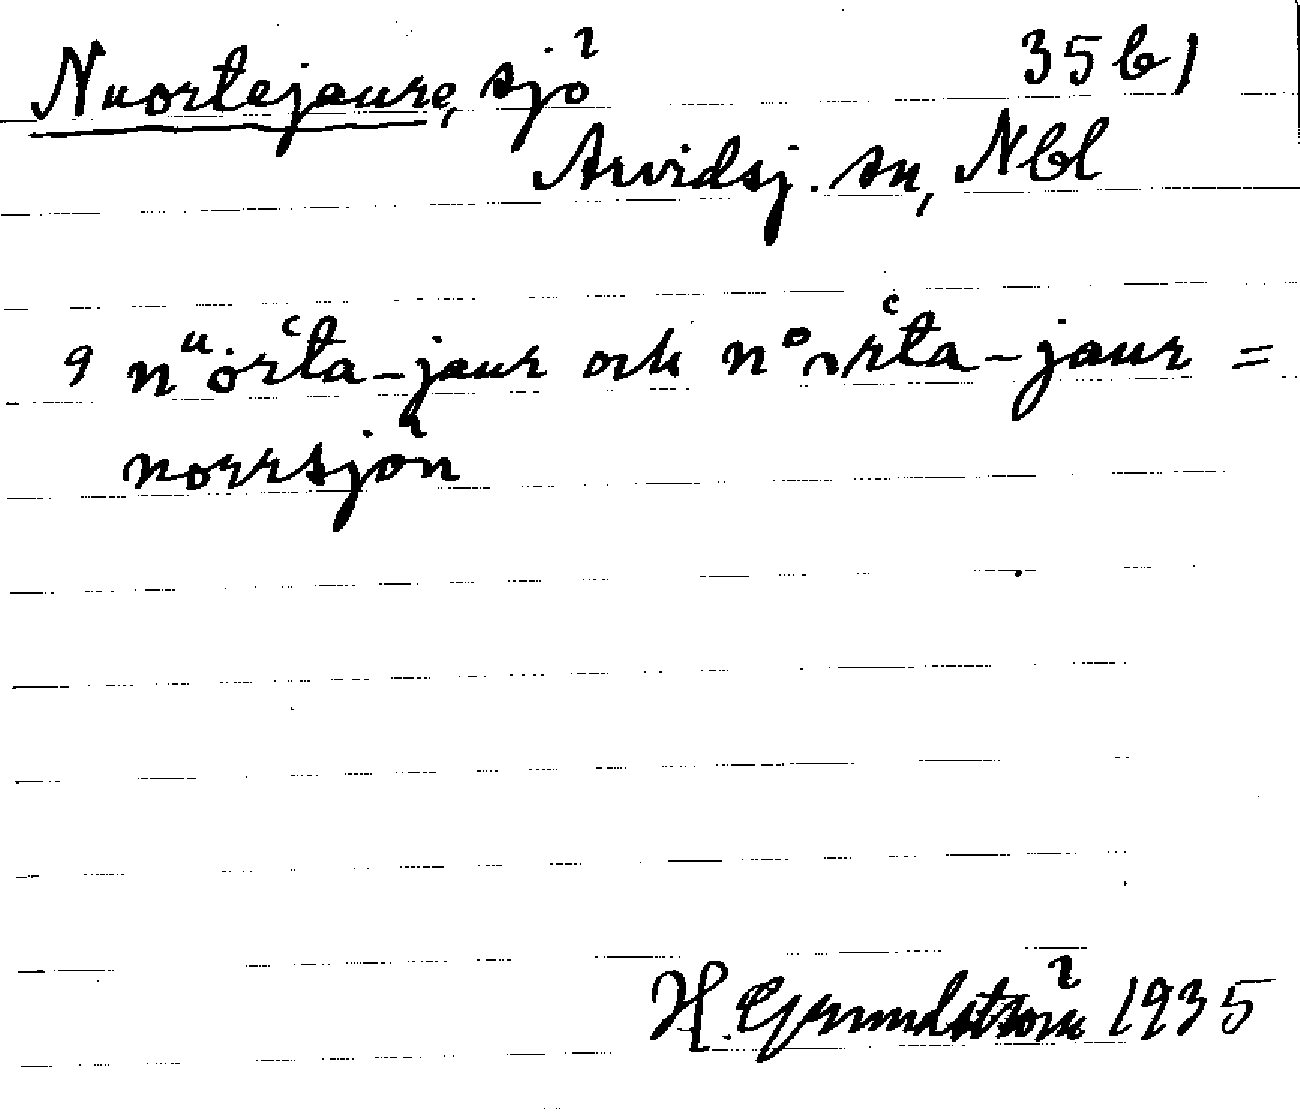 Nuortejaure, sjö 35 b1
Arvidsj. sn, Nbl
9 nᵘȯrʿta-jaur och nᵒrʿta-jaur =
norrsjön
H. Grundström 1935